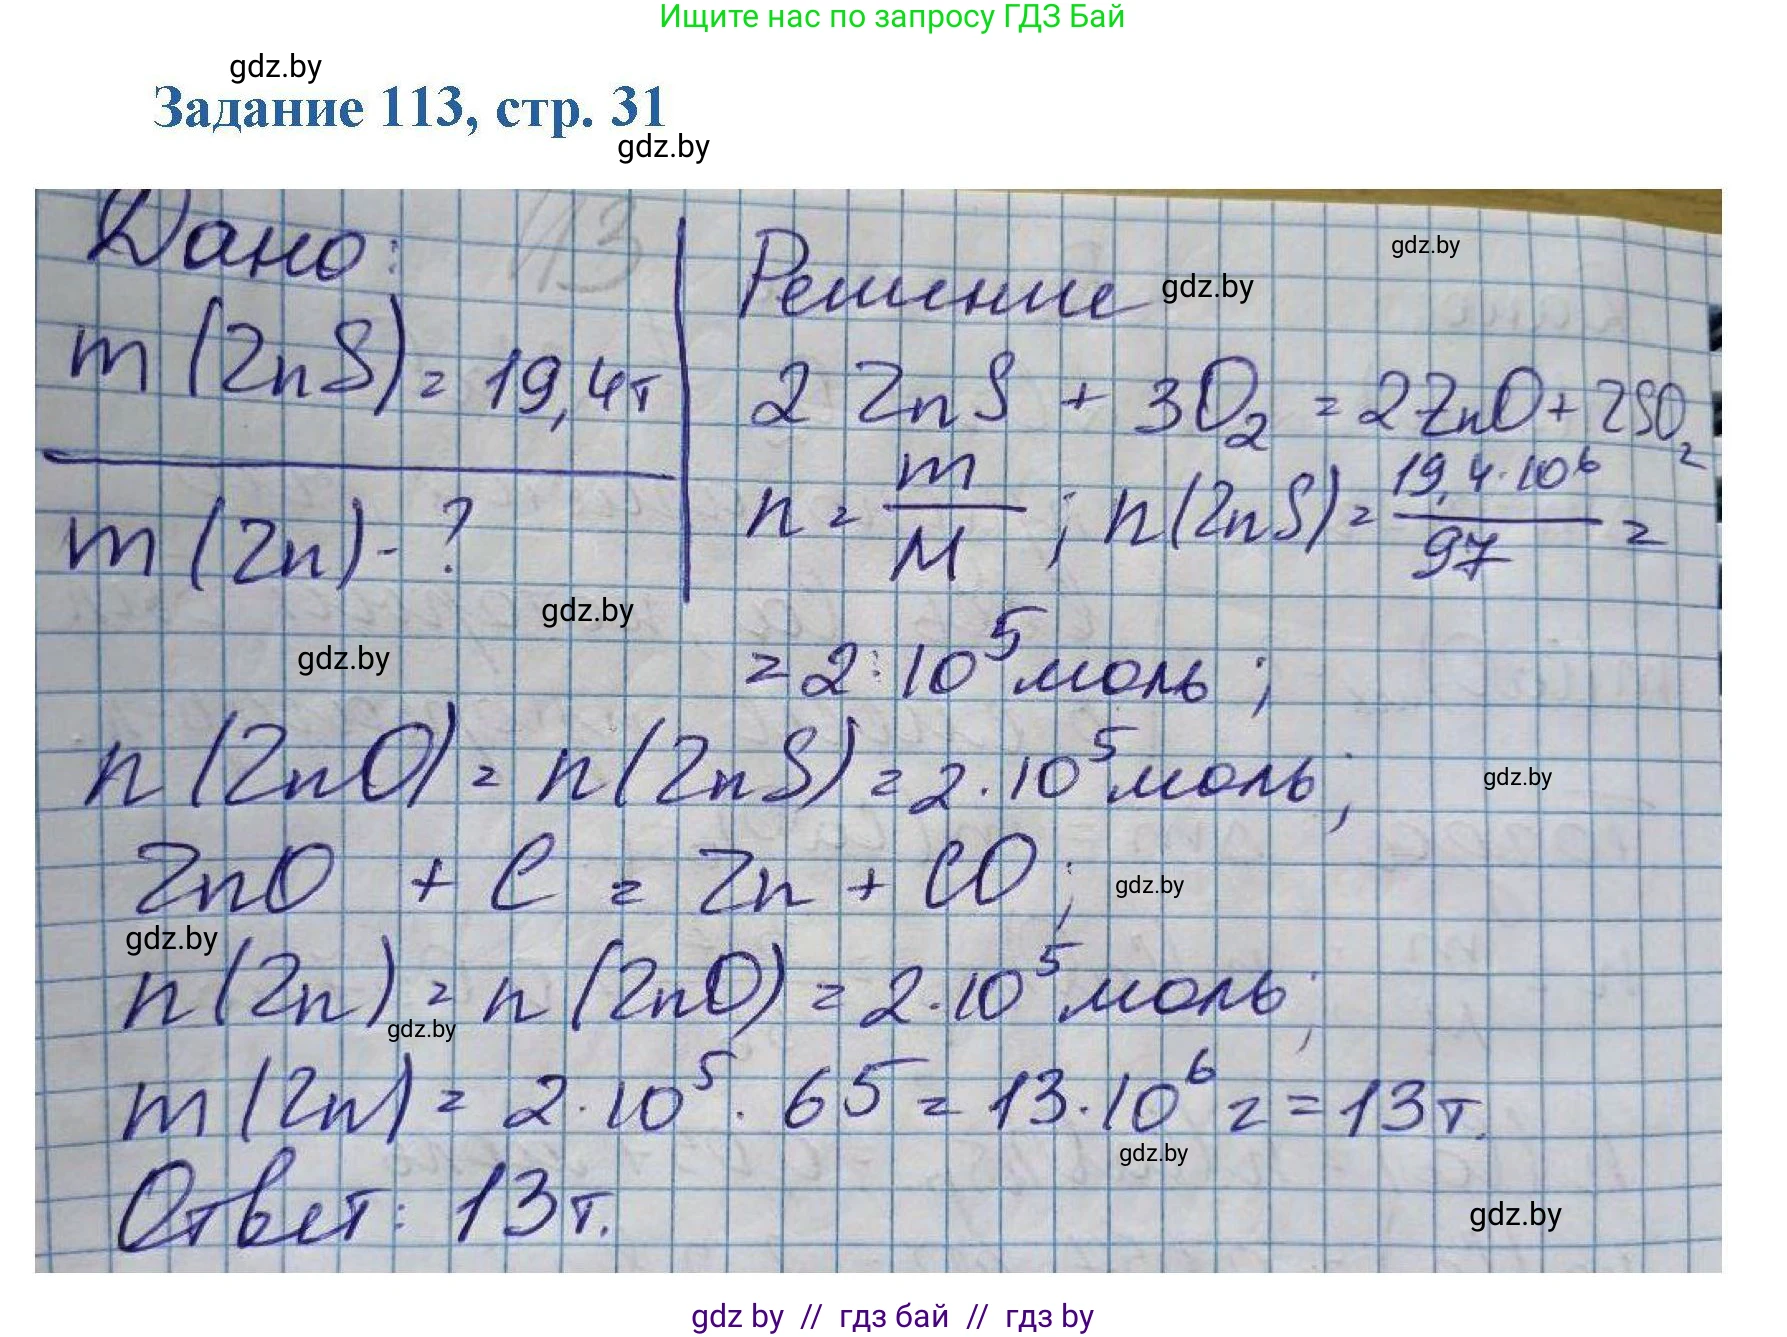 Ищите нас по запросу ГДЗ Бай
gdz.by
Задание 113, стр. 31
gdz.by
113
Дано:
m (ZnS) = 19,4т
m (Zn) - ?
Решение
gdz.by
gdz.by
2 ZnS + 3O₂ = 2ZnO + 2SO₂
n = m/M ; n(ZnS) = 19,4·10⁶/97 =
gdz.by
gdz.by
= 2·10⁵ моль ;
n (ZnO) = n (ZnS) = 2·10⁵ моль;
gdz.by
ZnO + C = Zn + CO ;
gdz.by
gdz.by
n (Zn) = n (ZnO) = 2·10⁵ моль;
gdz.by
m (Zn) = 2·10⁵ · 65 = 13·10⁶ г = 13 т.
gdz.by
Ответ: 13 т.
gdz.by
gdz by // гдз бай // гдз by